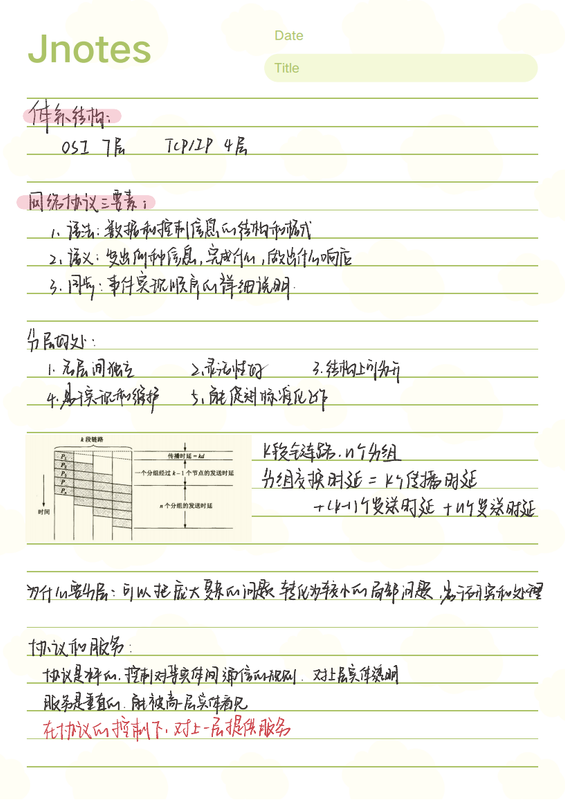 Jnotes
Date
Title
体系结构:
OSI 7层 TCP/IP 4层
网络协议三要素:
1. 语法:数据和控制信息的结构和格式
2. 语义:发出何种信息,完成什么,做出什么响应
3. 同步:事件实现顺序的详细说明.
分层好处:
1. 各层间独立 2. 灵活性好 3. 结构上可分开
4. 易于实现和维护 5. 能促进标准化工作
k 段链路
P1
P2
P3
P
Pn
时间
传播时延=kd
一个分组经过 k-1 个节点的发送时延
n 个分组的发送时延
K段链路,n个分组
分组交换时延 = K个传播时延
+(k-1)个发送时延 + n个发送时延
为什么要分层:可以把庞大复杂的问题 转化为较小的局部问题,易于研究和处理
协议和服务:
协议是水平的,控制对等实体间通信的规则. 对上层实体透明
服务是垂直的,能被高一层实体看见
在协议的控制下,对上一层提供服务